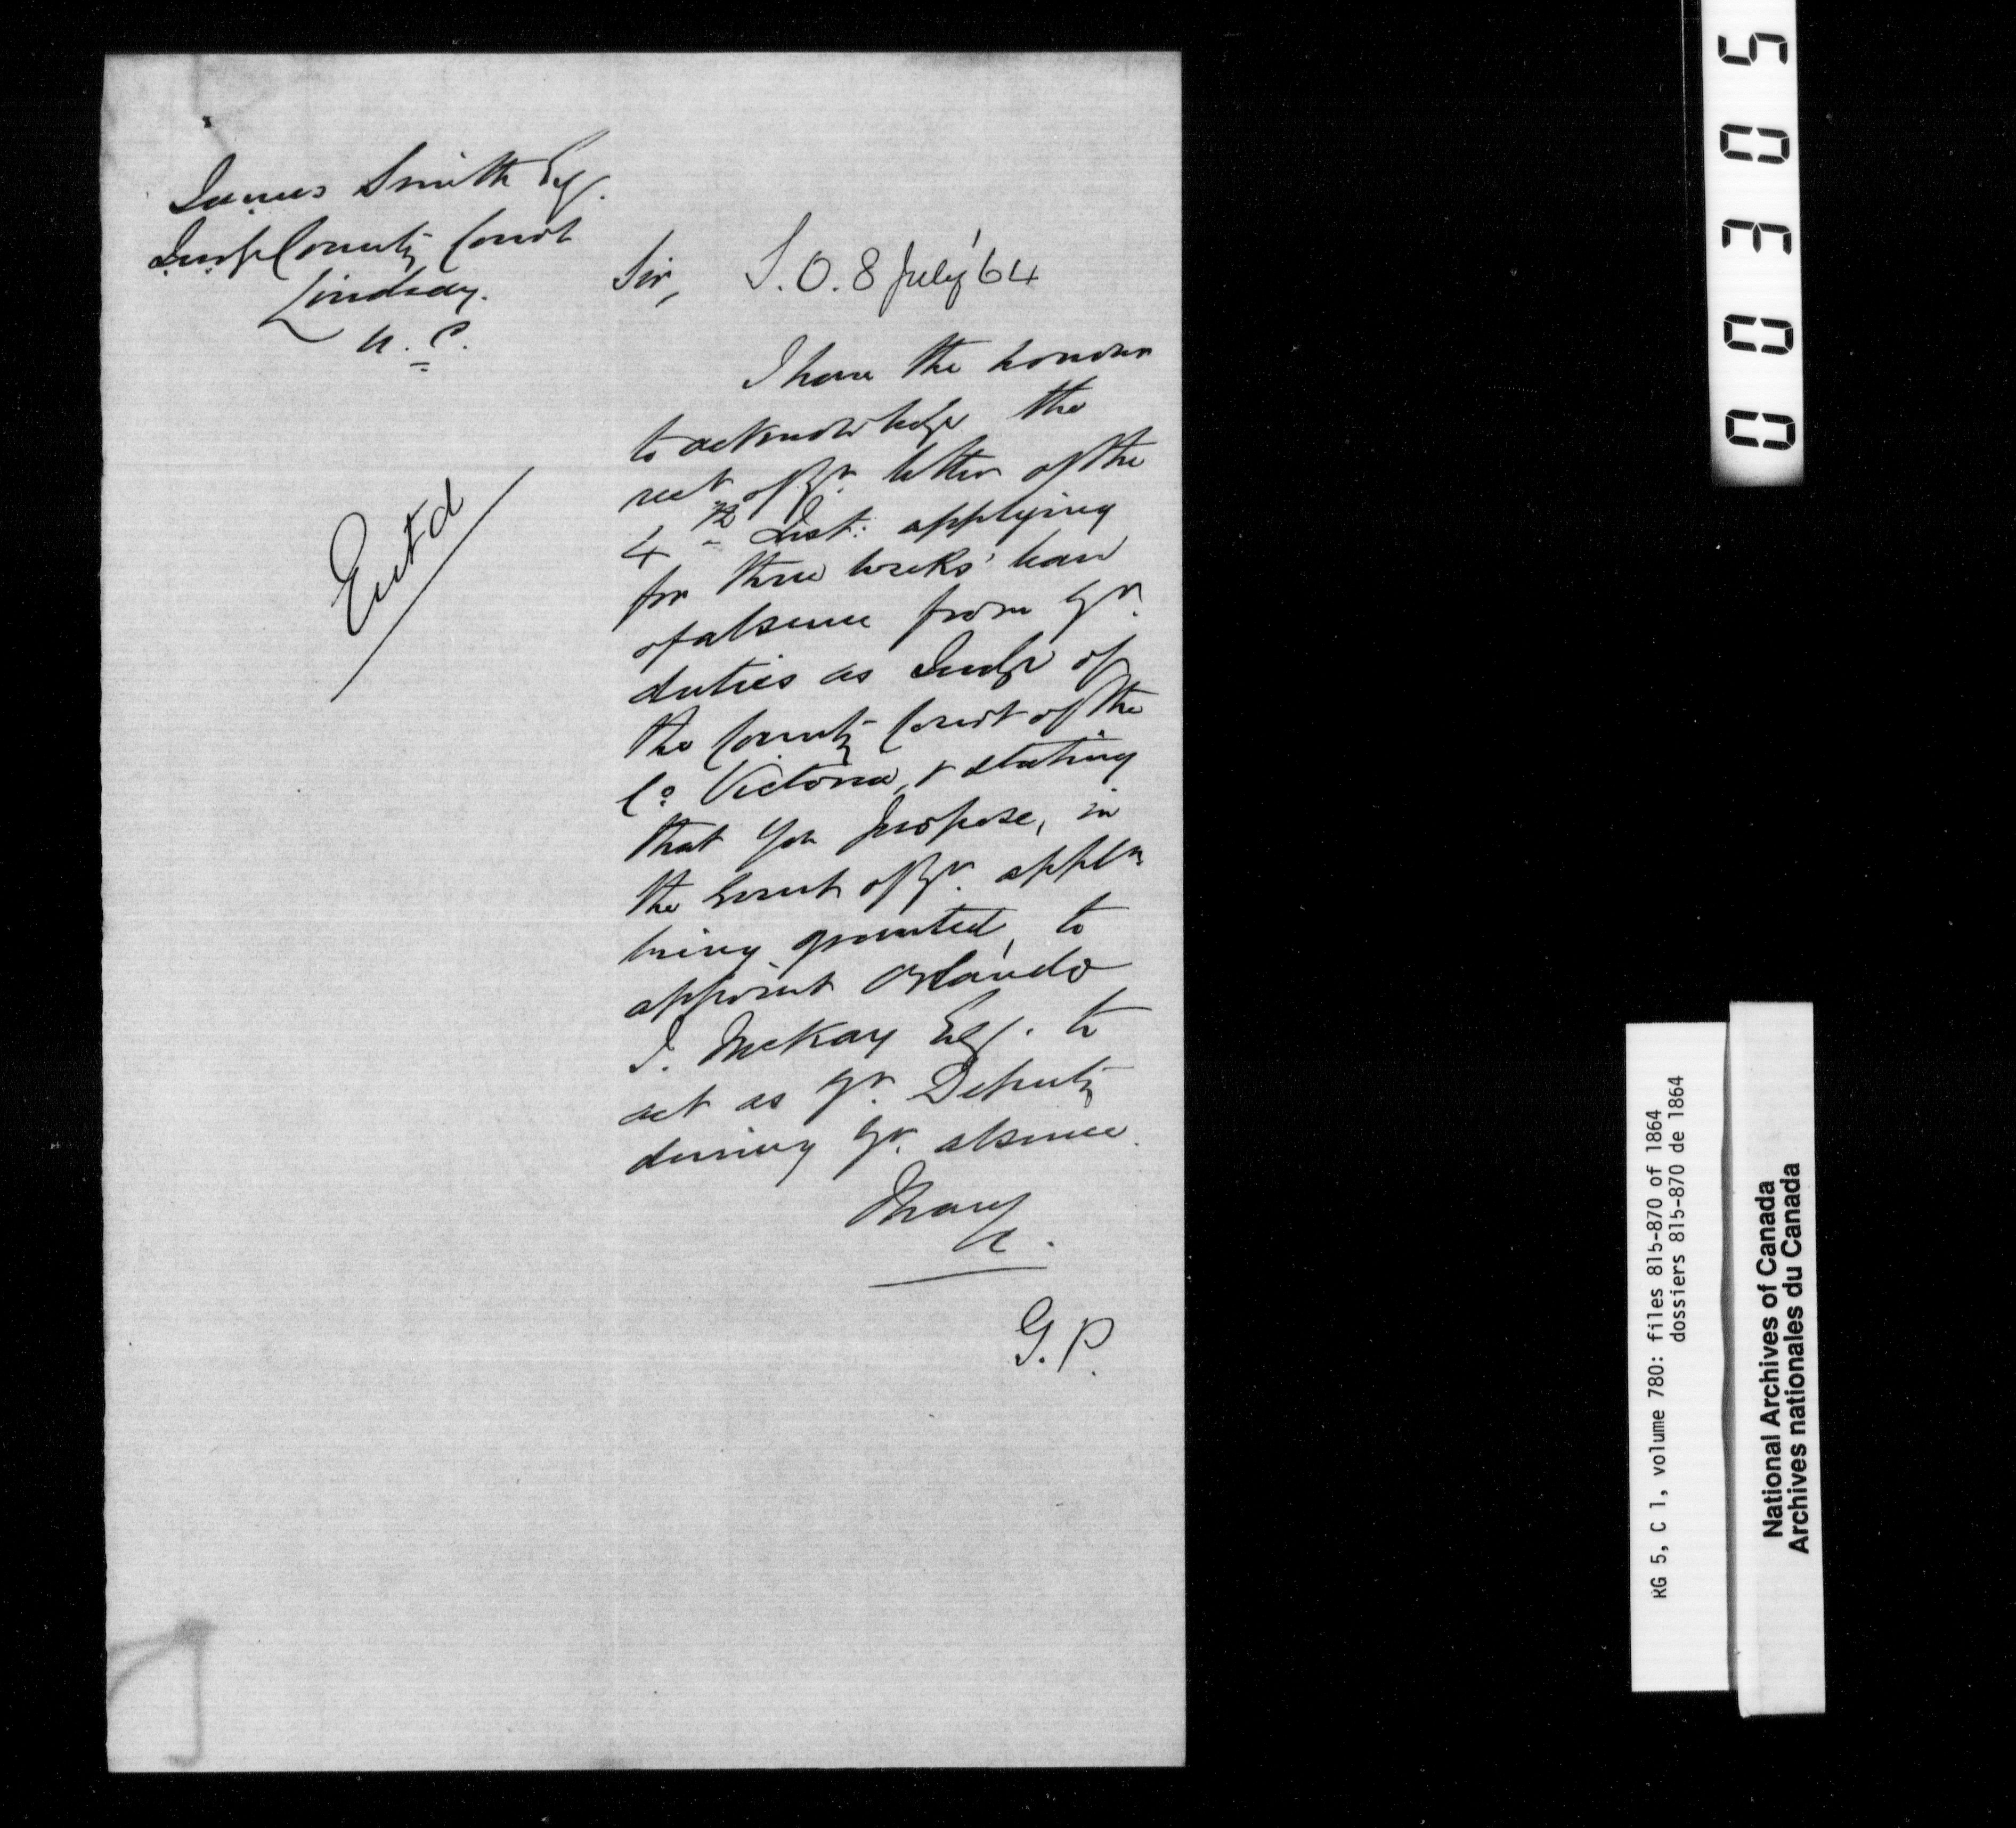 James Smith Esq.
Judge County Court
Lindsay.
U.C.
Sir, S.O. 8 July '64
I have the honour
to acknowledge the
rect of yr. letter of the
4th Inst: applying
for three weeks' leave
of absence from yr.
duties as Judge of
the County Court of the
Co. Victoria, & stating
that you propose, in
the event of yr. appln
being granted, to
appoint Orlando
I. McKay Esq. to
act as yr. Deputy
during yr. absence.
G.P.
Entd
00305
RG 5, C 1, volume 780: files 815-870 of 1864
dossiers 815-870 de 1864
National Archives of Canada
Archives nationales du Canada